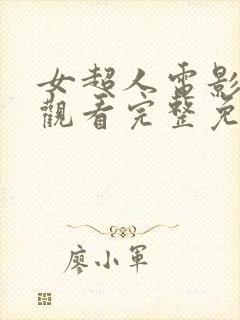 女超人電影
觀看完整免
廖小軍